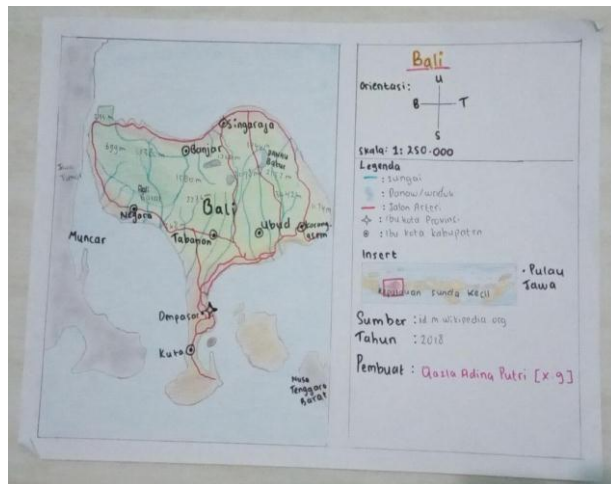 Bali
U
Orientasi:
B
T
S
Skala: 1: 250.000
Legenda
: Sungai
: Danau/waduk
: Jalan Arteri
: Ibu kota Provinsi
: Ibu kota kabupaten
Insert
Kepulauan Sunda Kecil
• Pulau
Jawa
Sumber : id m wikipedia org
Tahun : 2018
Pembuat : Qasla Adina Putri [X 9]
Singaraja
Banjar
Danau
Batur
Bali
Barat
Negara
Bali
Tabanan
Ubud
Karang
asem
Muncar
Kuta
Nusa
Tenggara
Barat